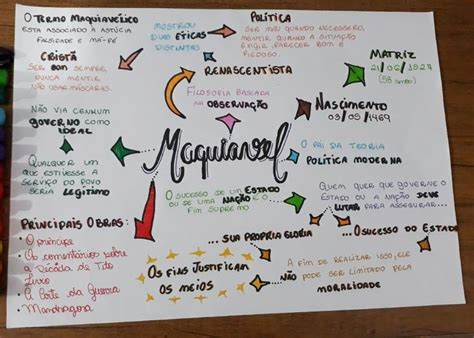 O TERMO MAQUIAVÉLICO
ESTA ASSOCIADO A ASTÚCIA
FALSIDADE E MÁ-FÉ
MOSTROU
DUAS ÉTICAS
DISTINTAS
POLÍTICA
SER MAU QUANDO NECESSÁRIO,
MENTIR QUANDO A SITUAÇÃO
EXIGIR, PARECER BOM E
PIEDOSO.
CRISTÃ
SER BOM SEMPRE,
NUNCA MENTIR
NÃO USAR MÁSCARAS.
RENASCENTISTA
FILOSOFIA BASEADA
NA OBSERVAÇÃO
21/06/1527
(58 anos)
NASCIMENTO
03/05/1469
NÃO VIA NENHUM
GOVERNO COMO
IDEAL
Maquiavel
O PAI DA TEORIA
POLÍTICA MODERNA
QUALQUER UM
QUE ESTIVESSE A
SERVIÇO DO POVO
SERIA
LEGÍTIMO
O SUCESSO DE UM ESTADO
OU DE UMA NAÇÃO É O
FIM SUPREMO
QUEM QUER QUE GOVERNE O
ESTADO OU A NAÇÃO DEVE
LUTAR PARA ASSEGURAR...
PRINCIPAIS OBRAS:
• O príncipe
• Os comentários sobre
a Década de Tito
Lívio
• A Arte da Guerra
• Mandrágora
... SUA PROPRIA GLORIA
... O SUCESSO DO ESTADO
OS FINS JUSTIFICAM
OS MEIOS
A FIM DE REALIZAR ISSO, ELE
NÃO PODE SER LIMITADO PELA
MORALIDADE